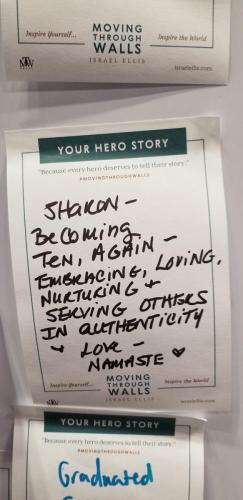 Inspire Yourself...
MOVING
THROUGH
WALLS
ISRAEL ELLIS
Inspire the World
israelellis.com
YOUR HERO STORY
"Because every hero deserves to tell their story."
#MOVINGTHROUGHWALLS
SHARON -
Becoming
TEN, AGAIN -
EMBRACING, LOVING,
NURTURING +
SERVING OTHERS
IN AUTHENTICITY
♥ LOVE -
NAMASTE ♥
Inspire Yourself...
MOVING
THROUGH
WALLS
ISRAEL ELLIS
Inspire the World
israelellis.com
YOUR HERO STORY
"Because every hero deserves to tell their story."
#MOVINGTHROUGHWALLS
Graduated